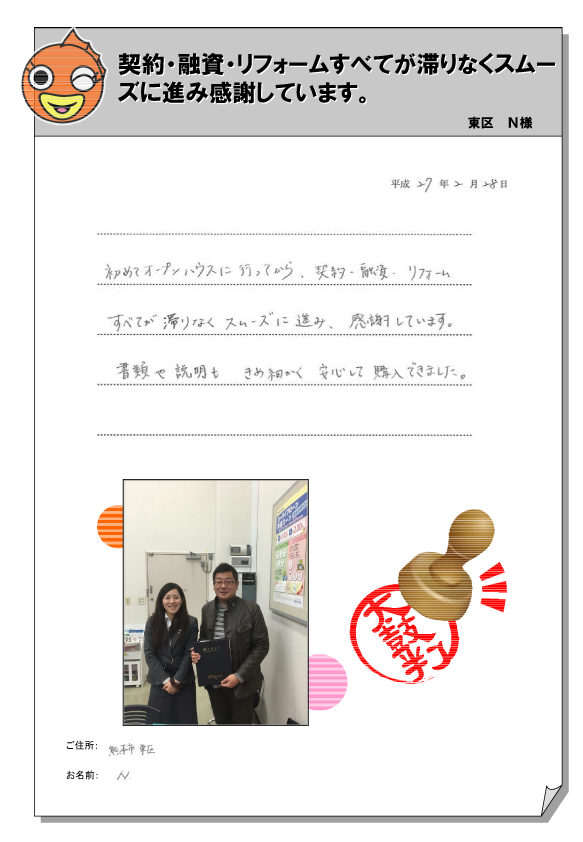 契約・融資・リフォームすべてが滞りなくスムー
ズに進み感謝しています。
東区　N様
平成 27 年 2 月 28日
初めてオープンハウスに行ってから、契約・融資・リフォーム
すべてが滞りなくスムーズに進み、感謝しています。
書類や説明も きめ細かく 安心して購入できました。
太鼓判
ご住所： 熊本市 東区
お名前： N